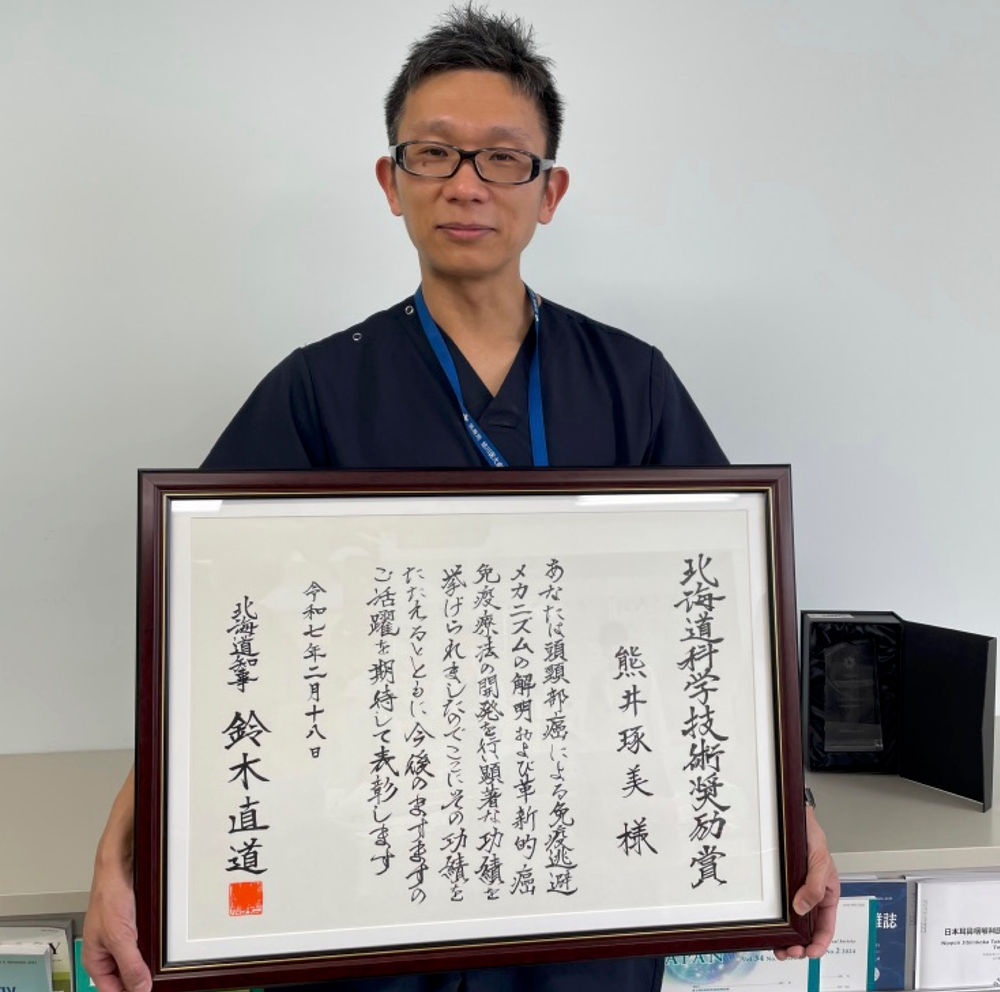 北海道科学技術奨励賞
熊井琢美 様
あなたは頭頸部癌による免疫逃避
メカニズムの解明および革新的癌
免疫療法の開発を行い顕著な功績を
挙げられましたのでここにその功績を
たたえるとともに今後のますますの
ご活躍を期待して表彰します
令和七年二月十八日
北海道知事 鈴木直道
雑誌
No. 2 2024
日本耳鼻咽喉科